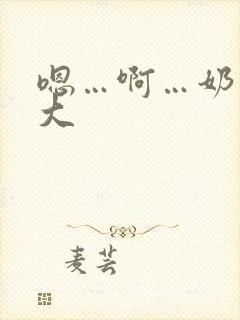 嗯…啊…奶
大
麦芸